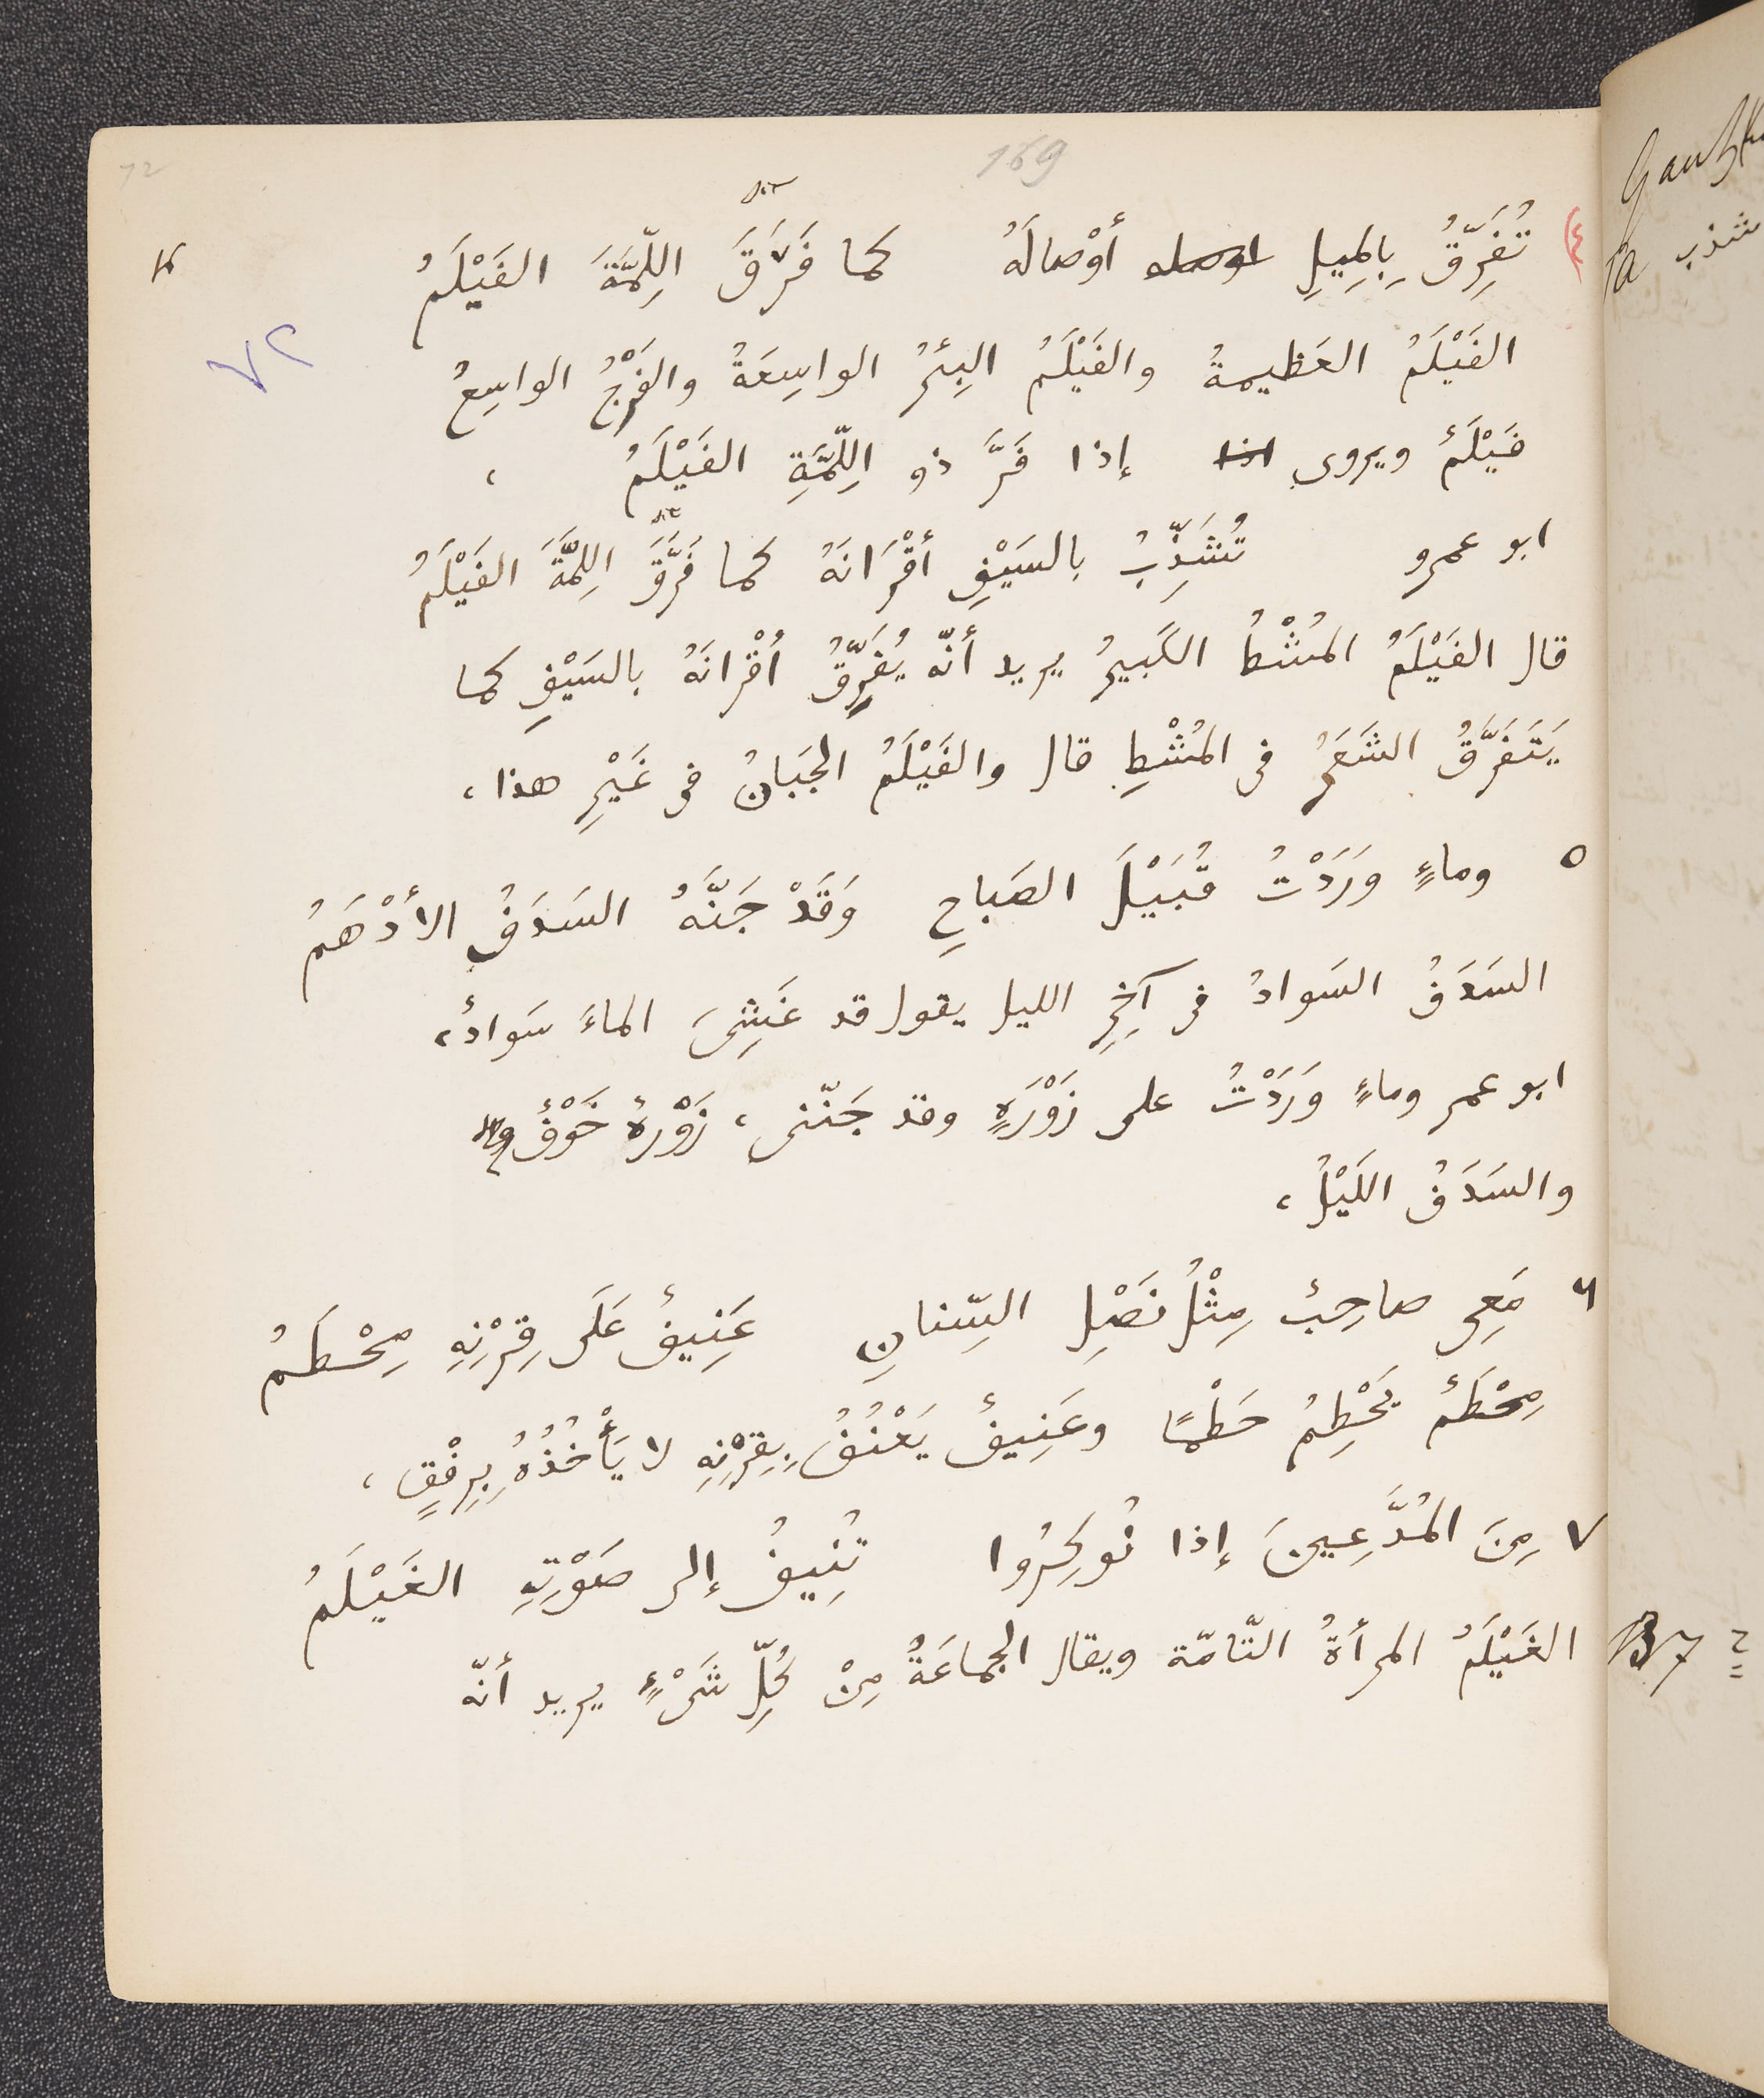 169
72
٧٢
٤) تُفَرِّقُ بِالمِيلِ أوْصالَهُ كما فَرَّقَ اللِّمَّةَ الفَيْلَمُ
الفَيْلَمُ العَظيمةُ والفَيْلَمُ البِئرُ الواسِعَةُ والفَرْجُ الواسِعُ
فَيْلَمٌ ويروى إذا فَرَّ ذو اللِّمَّةِ الفَيْلَمُ ،
ابو عمرو تُشَذِّبُ بالسَيْفِ أقْرَانَهُ كما فَرَّقَ اللِمَّةَ الفَيْلَمُ
قال الفَيْلَمُ المُشْطُ الكَبيرُ يريد أنّه يُفَرِّقُ أقْرانَهُ بالسَيْفِ كما
يَتَفَرَّقُ الشَعَرُ فى المُشْطِ قال والفَيْلَمُ الجَبَانُ فى غَيْرِ هذا ،
٥ وماءٍ وَرَدْتُ قُبَيْلَ الصَباحِ وَقَدْ جَنَّهُ السَدَفُ الأدْهَمُ
السَدَفُ السَوادُ فى آخِرِ الليل يقول قد غَشِىَ الماءَ سَوادٌ ،
ابو عمر وماءٍ وَرَدْتُ على زَوْرَةٍ وقد جَنّنى ، زَوْرةٌ خَوْفٌ
والسَدَفُ اللَيْلُ ،
٦ مَعِى صاحِبٌ مِثْلُ نَصْلِ السِّنانِ عَنِيفٌ عَلَى قِرْنِهِ مِحْطَمُ
مِحْطَمٌ يَحْطِمُ حَطْمًا وعَنِيفٌ يَعْنُفُ بِقِرْنِهِ لا يَأْخُذُهُ بِرِفْقٍ ،
٧ مِنَ المُدَّعِينَ إذا نُوكِرُوا تُنِيفُ إلى صَوْتِهِ الغَيْلَمُ
الغَيْلَمُ المرأةُ التّامّة ويقال الجماعَةُ مِنْ كُلِّ شَىْءٍ يريد أنّه
شذب